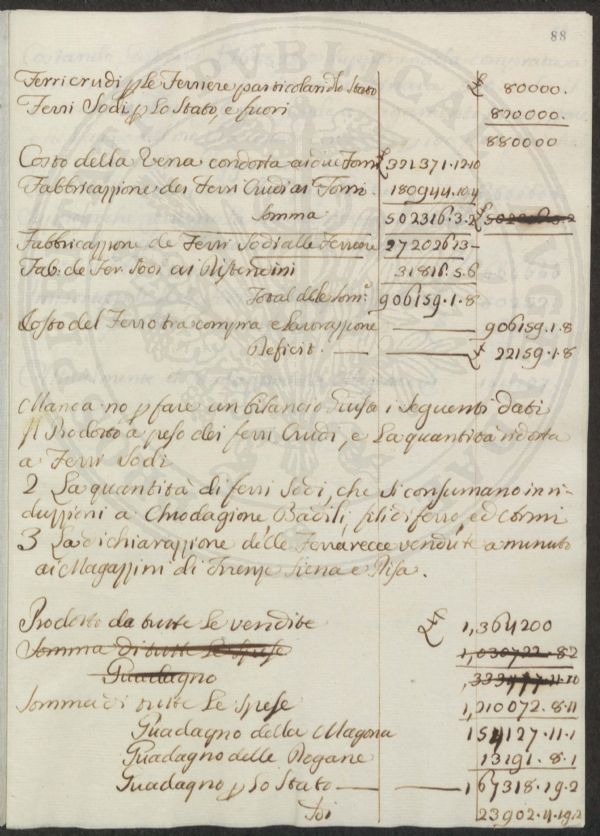 88
Ferri crudi p le Ferriere particolari dlo Stato £ 80000.
Ferri Sodi p Lo Stato, e fuori 820000.
880000
Costo della Vena condotta ai due Forni £ 321371.12.10
Fabbricazzione dei Ferri Crudi ai Forni. 180944.10.4
Somma 502316.3.2
Fabbricazzione de Ferri Sodi alle Ferriere 372026.13–
Fab. de Fer. Sodi ai Distendini 31816.5.6
Total delle Som.e 906159.1.8
Costo del Ferro tra compra e lavorazzione — 906159.1.8
Deficit. — £ 22159.1.8
Manca no p fare un bilancio Giusto i seguenti dati
Il Prodotto a peso dei ferri Crudi, e La quantità ridotta
a Ferri Sodi
2 La quantità di ferri Sodi, che si consumano in ri-
duzzioni a Chiodagione Badili, fili di ferro, ed
3 La dichiarazzione delle Ferrarecce vendute a minuto
ai Magazzini di Firenze Siena e Pisa.
Prodotto da tutte Le vendite £ 1,364200
Somma di tutte Le Spese 1,030722.8.2
Guadagno
Somma di tutte Le Spese 1,210072.8.11
Guadagno della Magona 154127.11.1
Guadagno delle Dogane 13191.8.1
Guadagno p Lo Stato — 167318.19.2
23902.11.19.2